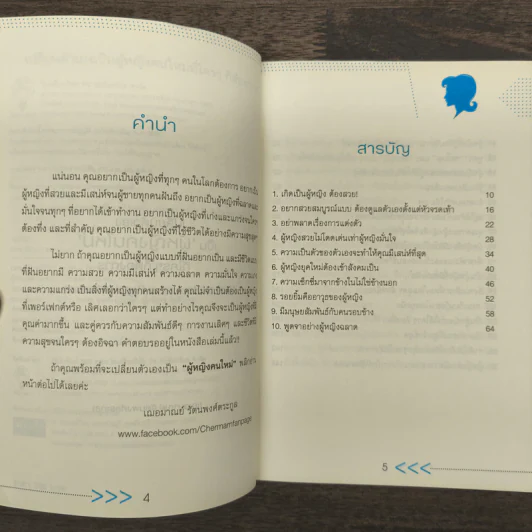 คำนำ
แน่นอน คุณอยากเป็นผู้หญิงที่ทุกๆ คนในโลกต้องการ อยากเป็น
ผู้หญิงที่สวยและมีเสน่ห์จนผู้ชายทุกคนฝันถึง อยากเป็นผู้หญิงที่ฉลาดและ
มั่นใจจนทุกๆ ที่อยากได้เข้าทำงาน อยากเป็นผู้หญิงที่เก่งและแกร่งจนใคร
ต้องทึ่ง และที่สำคัญ คุณอยากเป็นผู้หญิงที่ใช้ชีวิตได้อย่างมีความสุขสุดๆ
ไม่ยาก ถ้าคุณอยากเป็นผู้หญิงแบบที่ฝันอยากเป็น และมีชีวิตแบบ
ที่ฝันอยากมี ความสวย ความมีเสน่ห์ ความฉลาด ความมั่นใจ ความเก่ง
และความแกร่ง เป็นสิ่งที่ผู้หญิงทุกคนสร้างได้ คุณไม่จำเป็นต้องเป็นผู้หญิง
ที่เพอร์เฟกต์หรือ เลิศเลอกว่าใครๆ แต่ทำอย่างไรคุณจึงจะเป็นผู้หญิงที่มี
คุณค่ามากขึ้น และคู่ควรกับความสัมพันธ์ดีๆ การงานเลิศๆ และชีวิตที่มี
ความสุขจนใครๆ ต้องอิจฉา คำตอบรออยู่ในหนังสือเล่มนี้แล้ว!
ถ้าคุณพร้อมที่จะเปลี่ยนตัวเองเป็น "ผู้หญิงคนใหม่" พลิกอ่าน
หน้าต่อไปได้เลยค่ะ
เฌอมาณย์ รัตนพงศ์ตระกูล
www.facebook.com/Chermarnfanpage
>>> 4
สารบัญ
1. เกิดเป็นผู้หญิง ต้องสวย! 10
2. อยากสวยสมบูรณ์แบบ ต้องดูแลตัวเองตั้งแต่หัวจรดเท้า 16
3. อย่าพลาดเรื่องการแต่งตัว 22
4. ผู้หญิงสวยไม่โดดเด่นเท่าผู้หญิงมั่นใจ 28
5. ความเป็นตัวของตัวเองจะทำให้คุณมีเสน่ห์ที่สุด 34
6. ผู้หญิงยุคใหม่ต้องเข้าสังคมเป็น 40
7. ความเซ็กซี่มาจากข้างในไม่ใช่ข้างนอก 46
8. รอยยิ้มคืออาวุธของผู้หญิง 52
9. มีมนุษยสัมพันธ์กับคนรอบข้าง 58
10. พูดจาอย่างผู้หญิงฉลาด 64
5 <<<